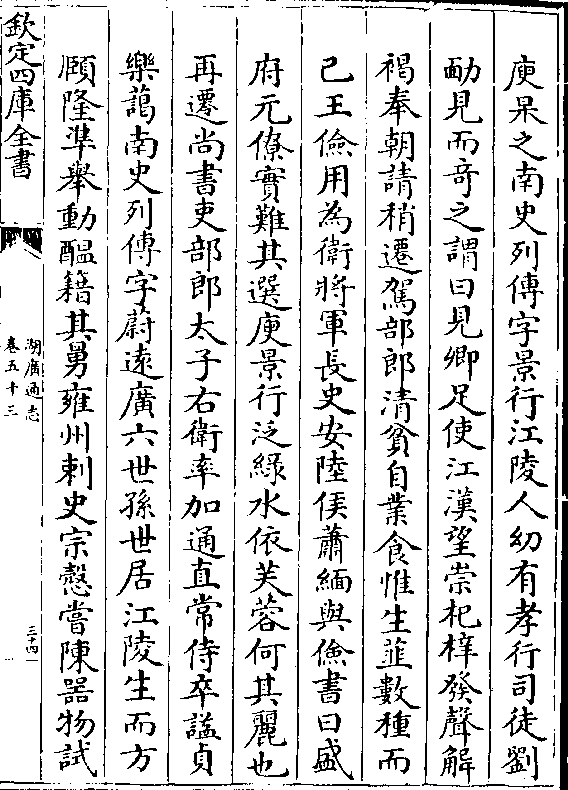 庾杲之南史列傳字景行江陵人幼有孝行司徒劉
勔見而奇之謂曰見卿足使江漢望崇杞梓發聲解
褐奉朝請稍遷駕部郎清貧自業食惟生韮數種而
已王儉用為衛將軍長史安陸侯蕭緬與儉書曰盛
府元僚實難其選庾景行泛緑水依芙蓉何其麗也
再遷尚書吏部郎太子右衛率加通直常侍卒諡貞
樂藹南史列傳字蔚遠廣六世孫世居江陵生而方
頤隆準舉動醖籍其舅雍州刺史宗慤嘗陳器物試
欽定四庫全書
湖廣通志
卷五十三
三十四